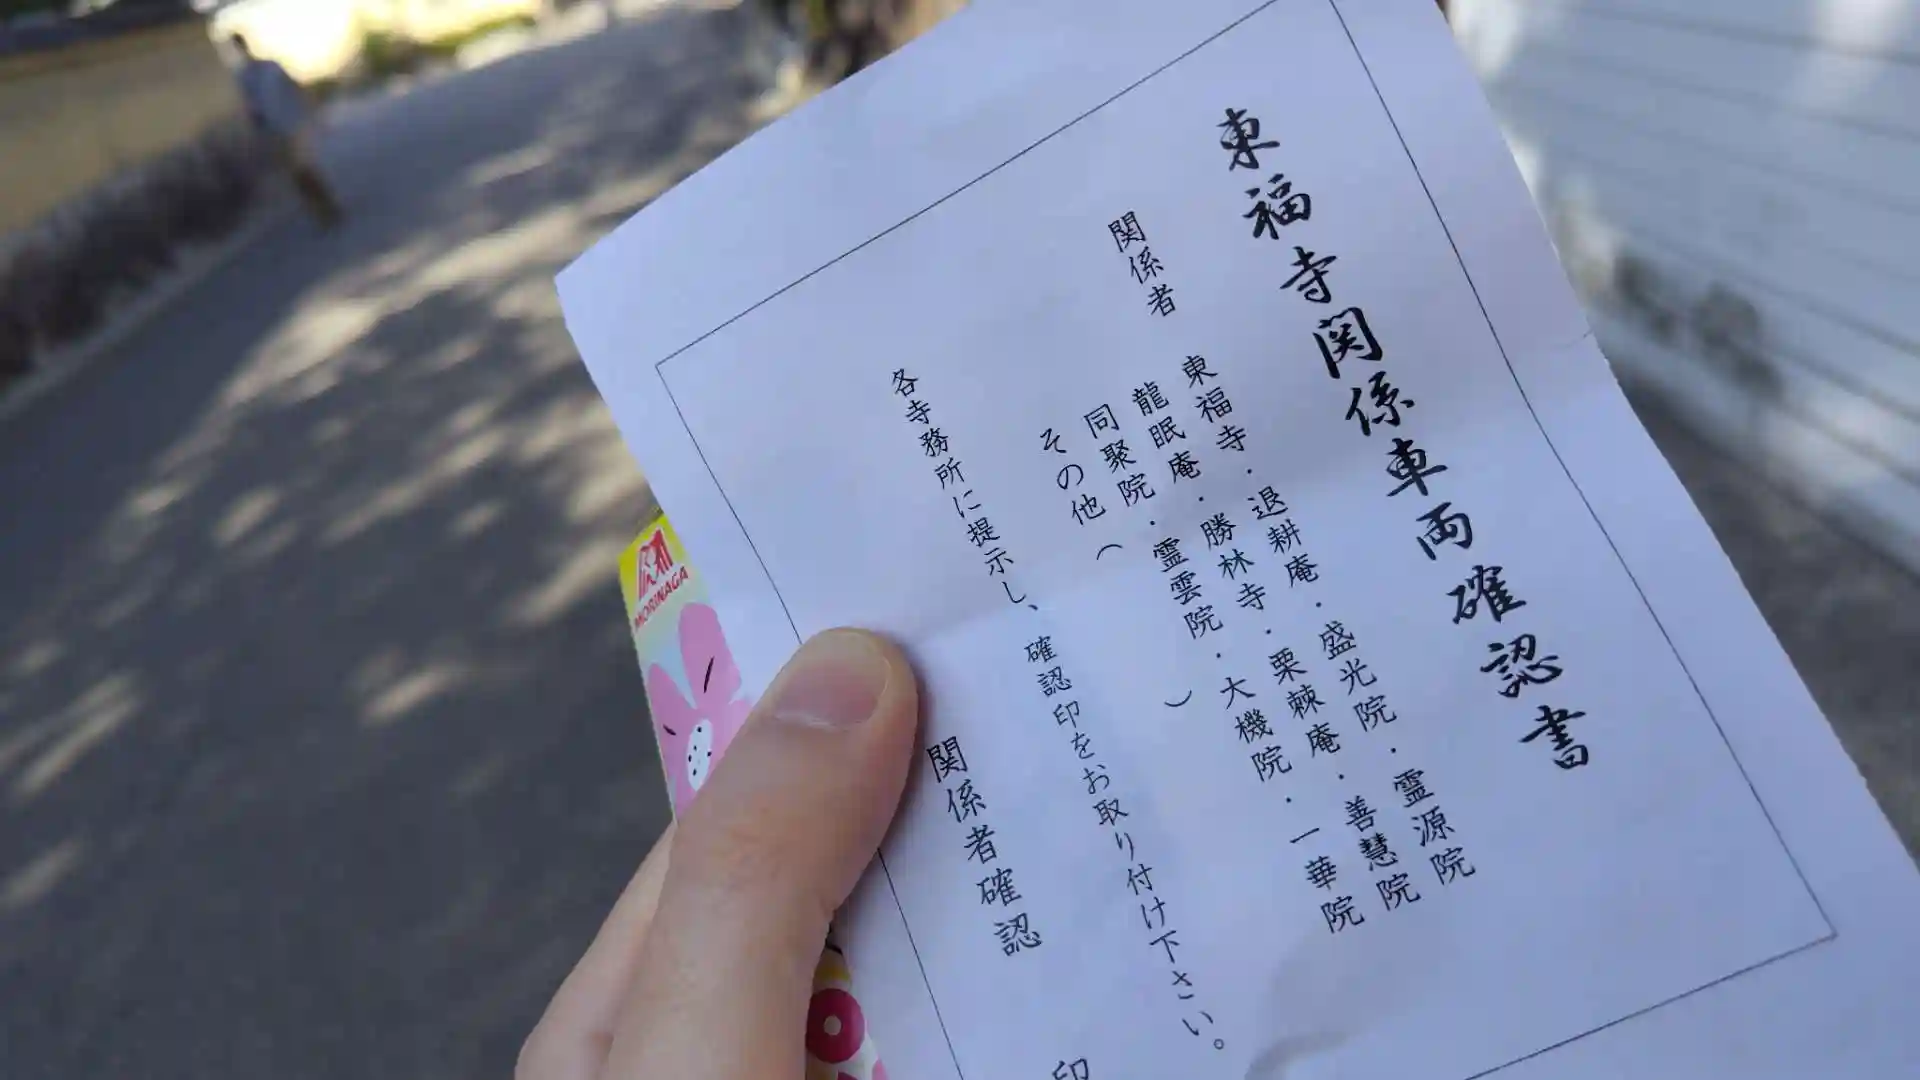 東福寺関係車両確認書
関係者 東福寺・退耕庵・盛光院・霊源院
龍眠庵・勝林寺・栗棘庵・善慧院
同聚院・霊雲院・大機院・一華院
その他（ ）
各寺務所に提示し、確認印をお取り付け下さい。
関係者確認 印
MORINAGA